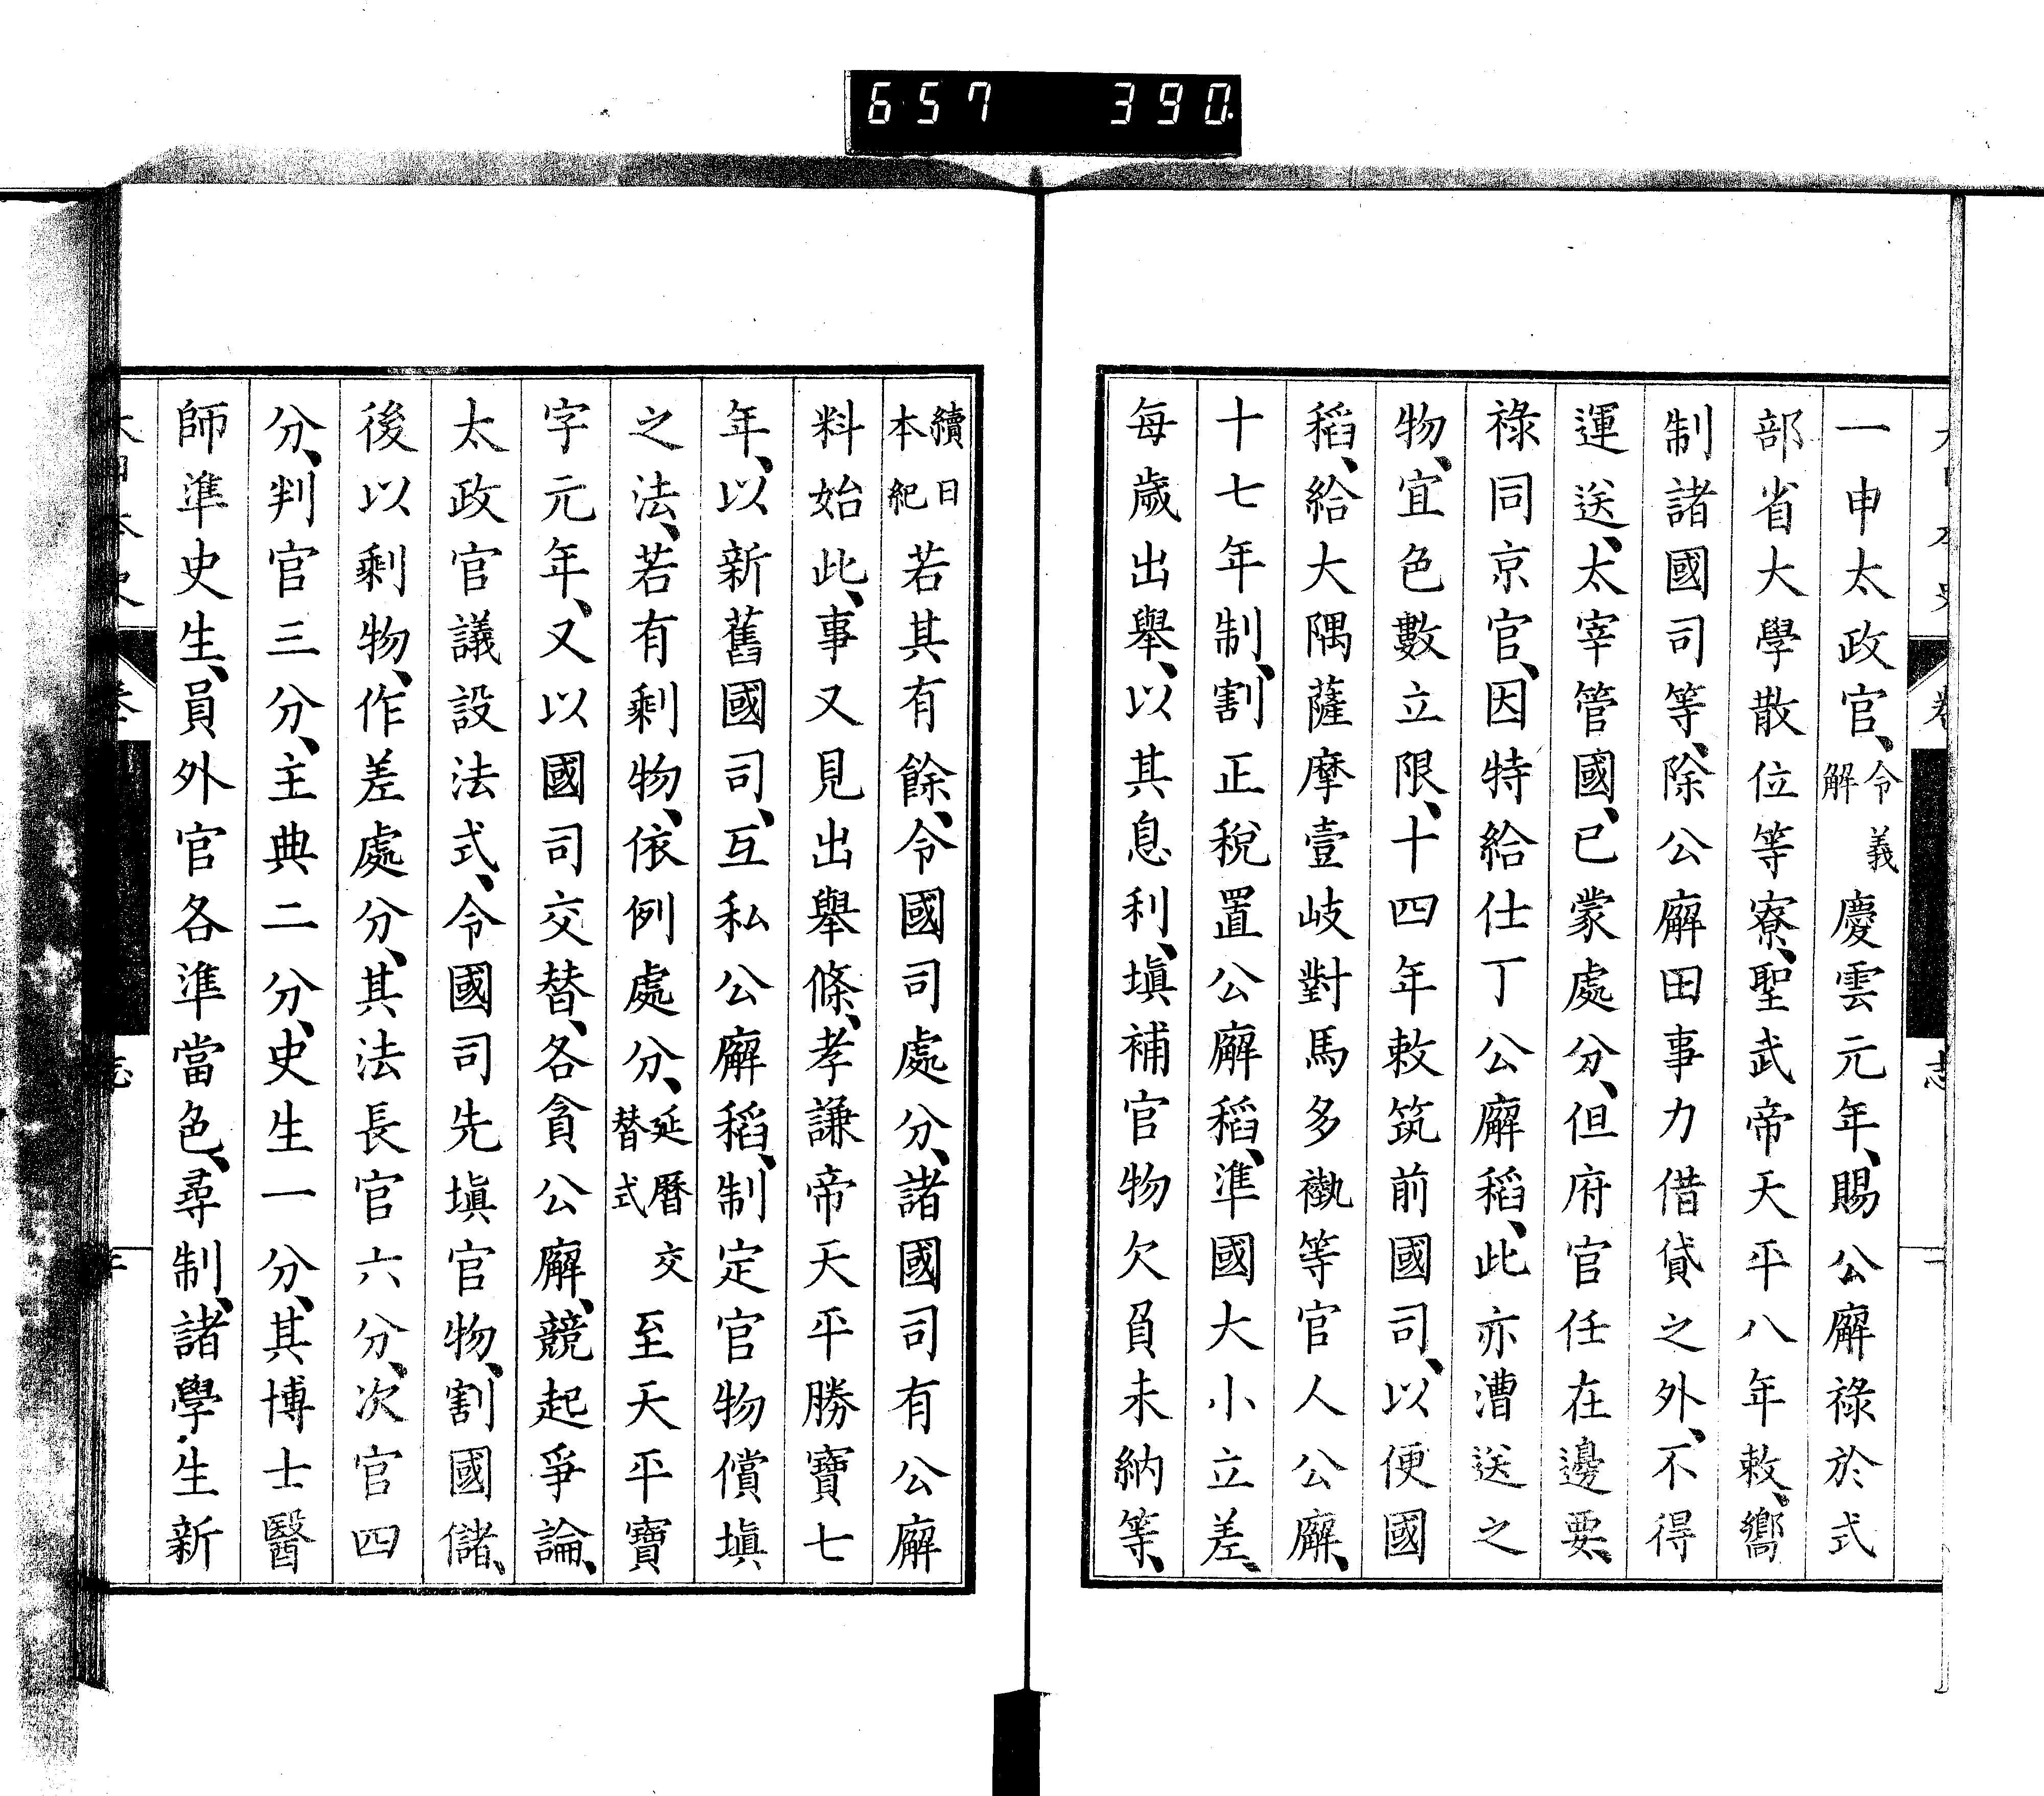 657 390
一申太政官、令義解慶雲元年、賜公廨祿於式
部省大學散位等寮、聖武帝天平八年敕、嚮
制諸國司等、除公廨田事力借貸之外、不得
運送、太宰管國、已蒙處分、但府官任在邊要、
祿同京官、因特給仕丁公廨稻、此亦漕送之
物、宜色數立限、十四年敕筑前國司、以便國
稻、給大隅薩摩壹岐對馬多褹等官人公廨、
十七年制、割正稅置公廨稻、準國大小立差、
每歲出舉、以其息利、塡補官物欠負未納等、
續日本紀若其有餘、令國司處分、諸國司有公廨
料始此、事又見出舉條、孝謙帝天平勝寶七
年、以新舊國司、互私公廨稻、制定官物償塡
之法、若有剩物、依例處分、延曆交替式至天平寶
字元年、又以國司交替、各貪公廨、競起爭論、
太政官議設法式、令國司先塡官物、割國儲、
後以剩物、作差處分、其法長官六分、次官四
分、判官三分、主典二分、史生一分、其博士醫
師準史生、員外官各準當色、尋制、諸學生新